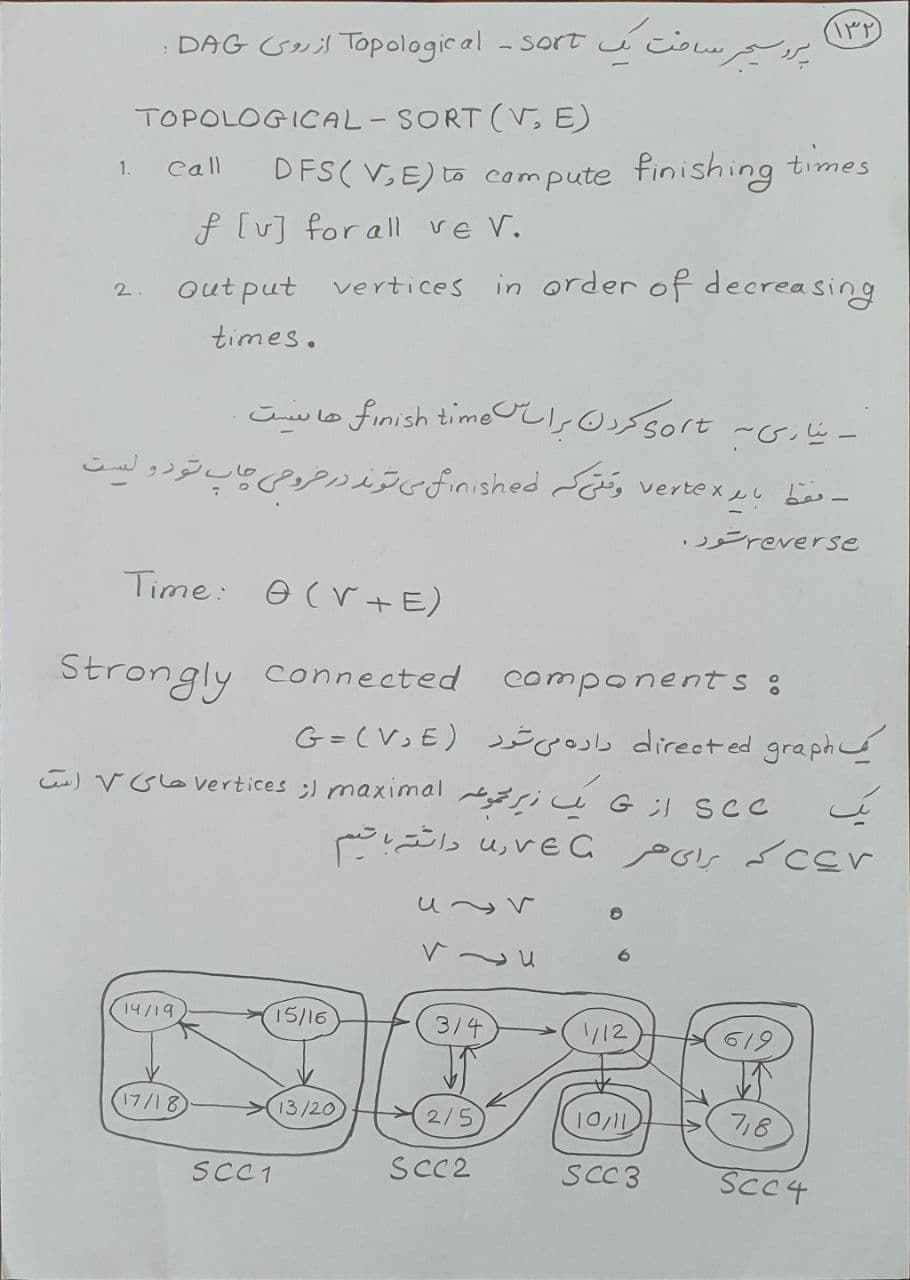 ۱۳۲
پروسیجر ساخت یک Topological - sort از روی DAG :
TOPOLOGICAL - SORT (V, E)
1. call DFS(V,E) to compute finishing times
f [v] for all v ∈ V.
2. output vertices in order of decreasing
times.
- نیازی به sort کردن براساس finish time ها نیست .
- فقط باید vertex وقتی که finished می شوند در خروجی چاپ شود و لیست
reverse شود .
Time: Θ (V + E)
Strongly connected components :
یک directed graph داده می شود G = (V, E)
یک SCC از G یک زیر مجموعه maximal از vertices های V است
C ⊆ V که برای هر u, v ∈ G داشته باشیم
u ⤳ v
و
v ⤳ u
14/19 15/16 3/4 1/12 6/9
17/18 13/20 2/5 10/11 7/8
SCC1 SCC2 SCC3 SCC4